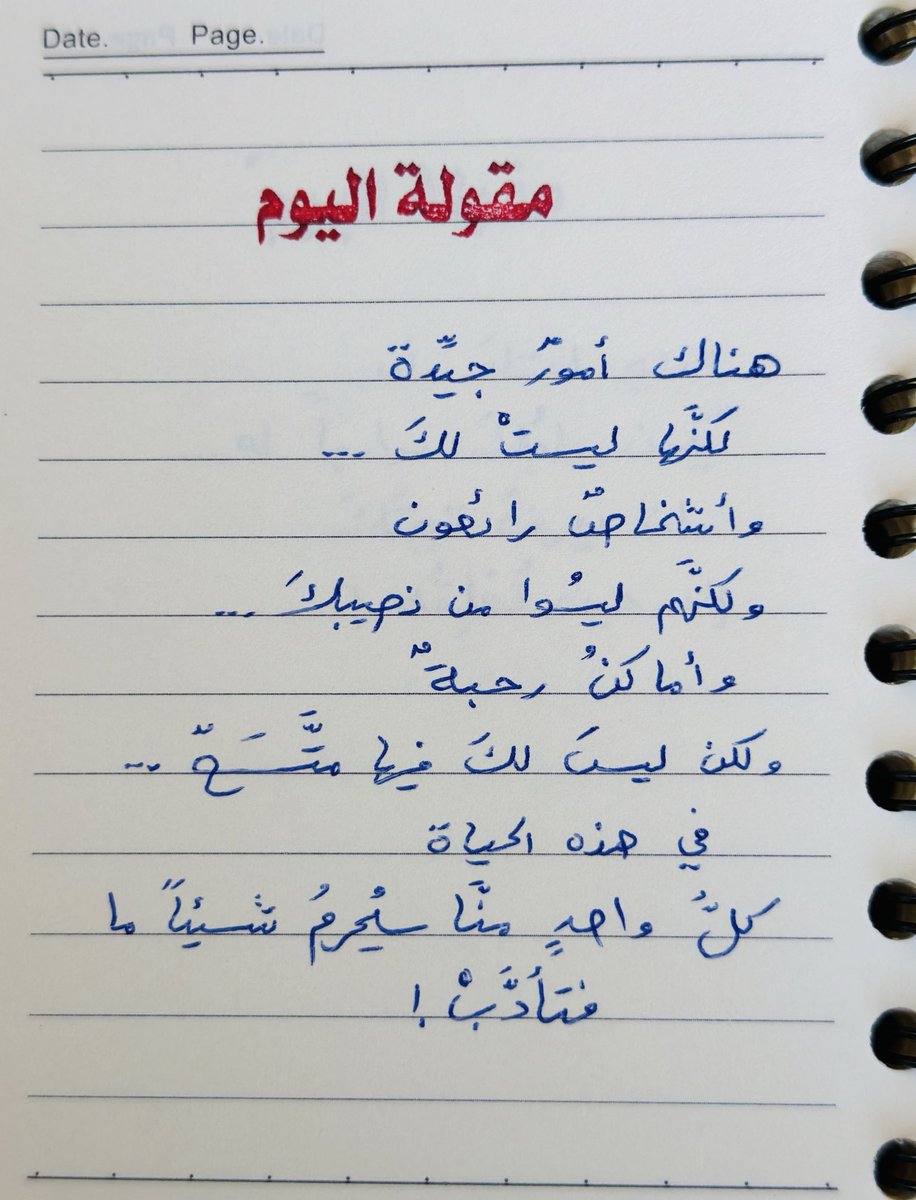 Date. Page.
مقولة اليوم
هناك أمورٌ جيِّدة
لكنَّها ليستْ لكَ ...
وأشخاصٌ رائعون
ولكنَّهم ليسُوا من نصيبكَ ...
وأماكنُ رحبةٌ
ولكنْ ليسَ لكَ فيها متَّسَعٌ ...
في هذه الحياة
كلُّ واحدٍ منَّا سيُحرمُ شيئاً ما
فتأدَّبْ !